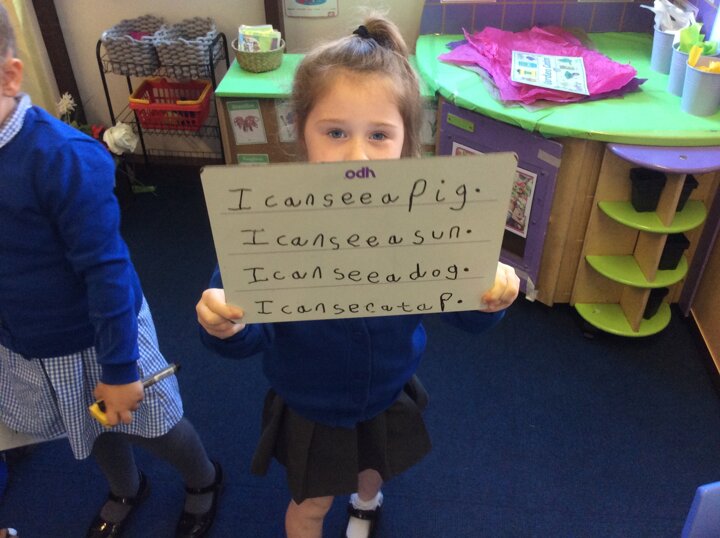 odh
I can see a pig.
I can see a sun.
I can see a dog.
I can see a tap.